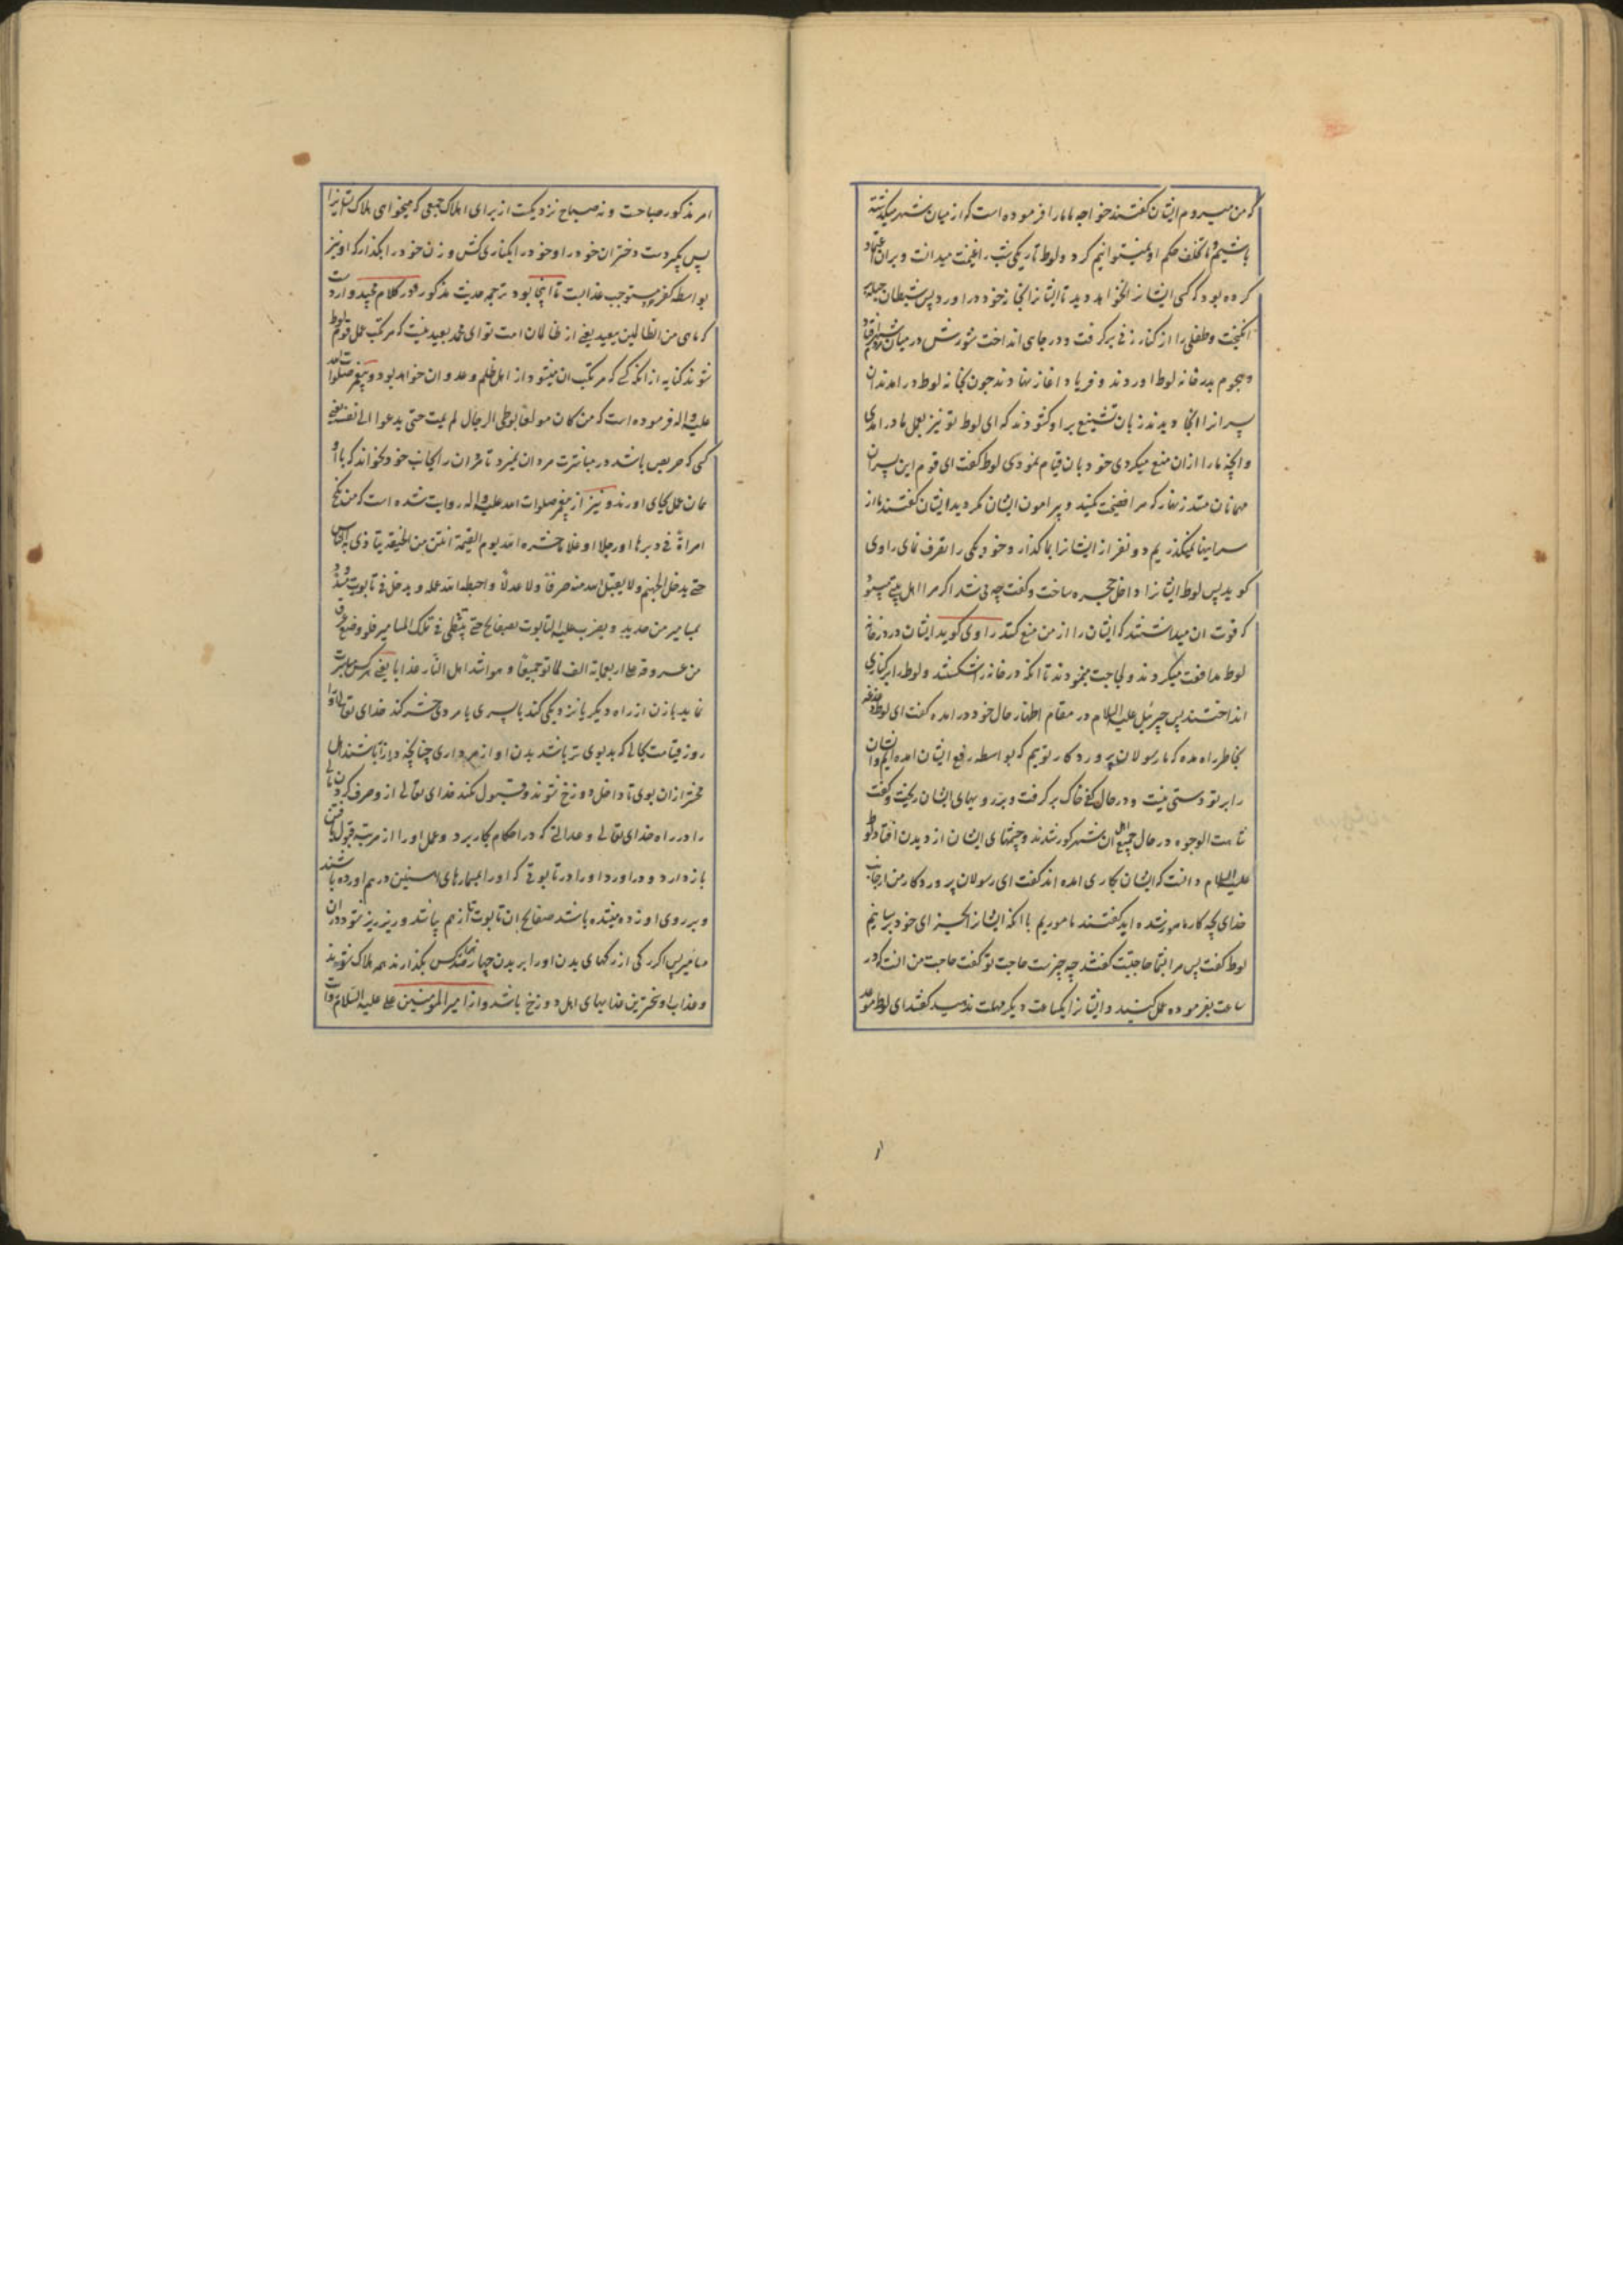 که من میروم ایشان گفتند خواجه ما ما را فرموده است که از میان شهر میکذشته
باشیم و ما تخلف حکم او نمیتوانیم کرد و لوط تاریکی شب را غنیمت میدانست و بران اعتماد
کرده بود که کسی ایشانرا نخواهد دید تا ایشانرا بخانه خود دراورد پس شیطان حیله
انکیخت و طفلی را از کنار زنی برکرفت و در چاهی انداخت شورش در میان شهر افتاد
و هجوم بدر خانه لوط اوردند و فریاد اغاز نهادند چون بخانه لوط درامدند ان
پسرانرا انجا دیدند زبان تشنیع بر او کشودند که ای لوط تو نیز بعمل ما درامدی
و انچه ما را ازان منع میکردی خود بان قیام نمودی لوط کفت ای قوم این پسران
مهمانان منند زنهار که مرا فضیحت مکنید و پیرامون ایشان مکردید ایشان کفتند ما از
سر اینها نمیکذریم دو نفر از ایشانرا بما کذار و خود یکی را تصرف نمای راوی
کوید پس لوط ایشانرا داخل حجره ساخت و کفت چه می شد اکر مرا اهل بیتی میبود
که قوت ان میداشتند که ایشان را از من منع کنند راوی کوید ایشان در در خانه
لوط مدافعت میکردند و لجاجت مینمودند تا انکه در خانه را شکستند و لوط را بر کناری
انداختند پس جبرئیل علیه السلام در مقام اظهار حال خود درامده کفت ای لوط دغدغه
بخاطر راه مده که ما رسولان پروردکار توییم که بواسطه دفع ایشان امده ایم و ایشان
را بر تو دستی نیست و در حال کفی خاک برکرفت و بر رویهای ایشان ریخت و کفت
شاهت الوجوه در حال جمیع اهل ان شهر کور شدند و چشمهای ایشان از دیدن افتاد لوط
علیه السلام دانست که ایشان بکاری امده اند کفت ای رسولان پروردکار من از جانب
خدای بچه کار مامور شده اید کفتند ما موریم با انکه ایشانرا بجزای خود برسانیم
لوط کفت پس مرا بشما حاجتیست کفتند چه چیزست حاجت تو کفت حاجت من انست که در
ساعت بفرموده عمل کنید و ایشانرا یکساعت دیکر مهلت ندهید کفتند ای لوط موعد
امر مذکور صباحت و نه صباح نزدیکست از برای اهلاک جمعی که میخواهی هلاک ایشانرا
پس بکیر دست دختران خود را و خود را بکناری کش و زن خود را بکذار که او نیز
بواسطه کفر مستوجب عذابست تا اینجا بود ترجمه حدیث مذکور و در کلام مجید وارد ست
که ما هی من الظالمین ببعید یعنی از ظالمان امت تو ای محمد بعید نیست که مرتکب عمل قوم لوط
شوند کنایه از انکه کسی که مرتکب ان میشود از اهل ظلم و عدوان خواهد بود و پیغمبر صلوات الله
علیه و اله فرموده است که من کان مولعا بوطی الرجال لم یمت حتی یدعوا الی نفسه یعنی
کسی که حریص باشد در مباشرت مردان نمیرد تا مردان را بجانب خود نخواند که با او
همان عمل بجای اورند و نیز از پیغمبر صلوات الله علیه و اله روایت شده است که من نکح
امراة فی دبرها او رجلا او غلاما حشره الله یوم القیمة انتن من الجیفه یتاذی به الناس
حتی یدخل الجهنم و لا یقبل الله منه صرفا و لا عدلا و احبط الله عمله و یدخل فی تابوت مشدود
بمسامیر من حدید و یضرب علیه التابوت بصفایح حتی یتشظی فی تلک المسامیر فلو وضع عرق
من عروقه علی اربعمایة الف لماتوا جمیعا و هو اشد اهل النار عذابا یعنی هر کس مباشرت
نماید با زن از راه دیکر یا نزدیکی کند با پسری یا مردی حشر کند خدای تعالی او را
روز قیامت بحالی که بدبوی تر باشد بدن او از مرداری چنانچه در ازار باشند اهل
محشر ازان بوی تا داخل دوزخ شوند و قبول نکند خدای تعالی از و صرف کردن مالی
را در راه خدای تعالی و عدالتی که در احکام بکار برد و عمل او را از مرتبه قبول یافتن
بازدارد و دراورد او را در تابوتی که او را بمسمارهای اهنین درهم اورده باشند
و بر روی او زده میشده باشد صفایح ان تابوت تا از هم بپاشد و ریز ریز شود دران
مسامیر پس اکر رکی از رکهای بدن او را بر بدن چهار صد هزار کس بکذارند همه هلاک شوند
و عذاب او سخترین عذابهای اهل دوزخ باشد و از امیر المومنین علی علیه السلام روایت